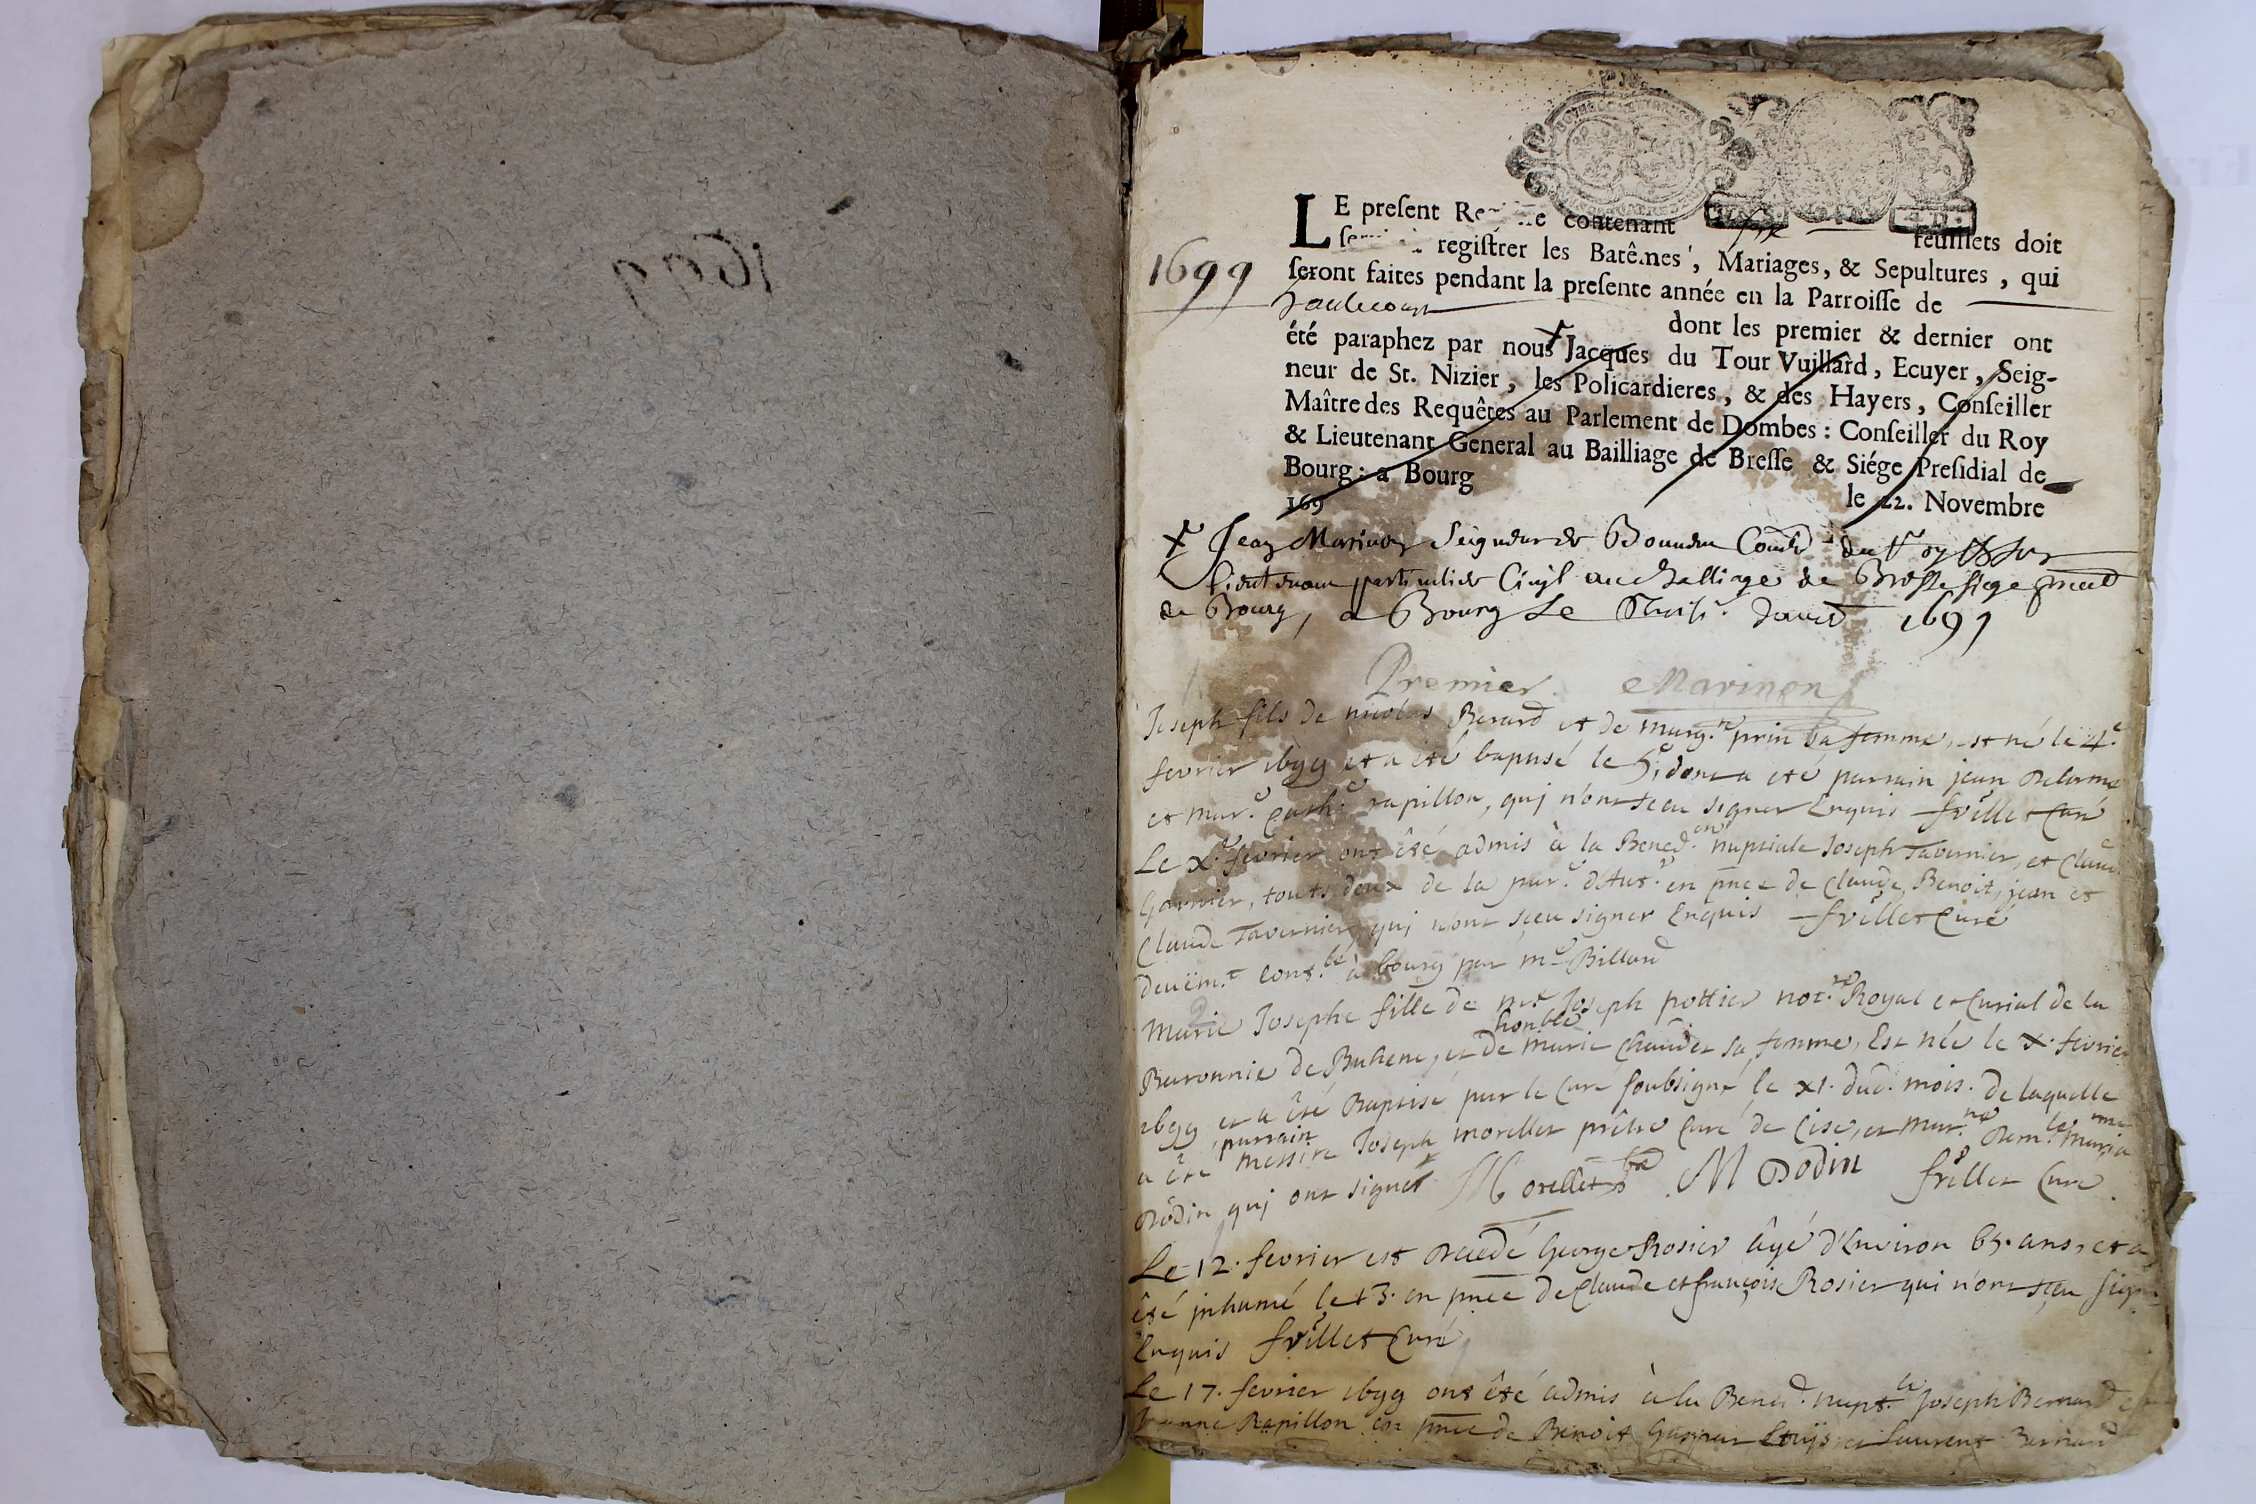 1699
1699
LE present Registre contenant six feuillets doit
registrer les Batêmes, Mariages, & Sepultures, qui
seront faites pendant la presente année en la Parroisse de
dont les premier & dernier ont
été paraphez par nous Jacques du Tour Vuillard, Ecuyer, Seig-
neur de St. Nizier, les Policardieres, & des Hayers, Conseiller
Maître des Requêtes au Parlement de Dombes : Conseiller du Roy
& Lieutenant General au Bailliage de Bresse & Siége Presidial de
Bourg : a Bourg
le 22. Novembre
169
Jean Marinon Seigneur de Conser du Roy
Lieutenant particulier Civil au Balliage de Bresse siege
de Bourg, a Bourg Le 1699
Premier Marinon
Joseph fils de nicolas Berard et de marg.te prin sa femme, est né le 4.e
fevrier 1699 et a été baptisé le 5, dont a été parrain jean Delorme
et mar.e Cath.e rapillon, quj n'ont sceu signer Enquis frillet Curé
Le X.e fevrier ont êté admis à la Bened.on nuptiale Joseph Tavernier, et Claud.e
Garnier, touts deux de la par.e en pnce de Claude, Benoit, jean et
Claude Tavernier quj n'ont sceu signer Enquis frillet Curé
deuëm.t cont.lé à bourg par m.e Billard
2
Marie Josephe fille de m.e Joseph pottier not.re Royal et Curial de la
Baronnie de Buhenc, et de honble marie Chaudet sa femme, Est née le X. fevrier
1699 et a êté Baptisé par le Curé soubsigné le XI. dud. mois. de laquelle
a êté parrain messire Joseph morellet prêtre Curé de Cise, et mar.ne dem.lle marie
Dodin quj ont signés Morellet M Dodin frillet Curé
Le 12. fevrier est decedé George Rosier âgé d'Environ 65. ans, et a
êté jnhumé le 13. en pnce de Claude et françois Rosier qui n'ont sceu sign
Enquis frillet Curé
Le 17. fevrier 1699 ont êté admis à la Bened. nupt.le Joseph Bernard et
Jeanne Rapillon en pnce de Benoit Laurent Bernard